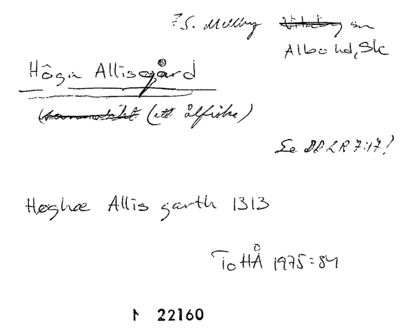 ?S. Mellby ~~Vitaby~~ sn
Albo hd, Sk
Höga Allisgård
(ett ålfiske)
Se DD 2 R 7:17!
Høghæ Allis garth 1313
To HÅ 1975:84
22160